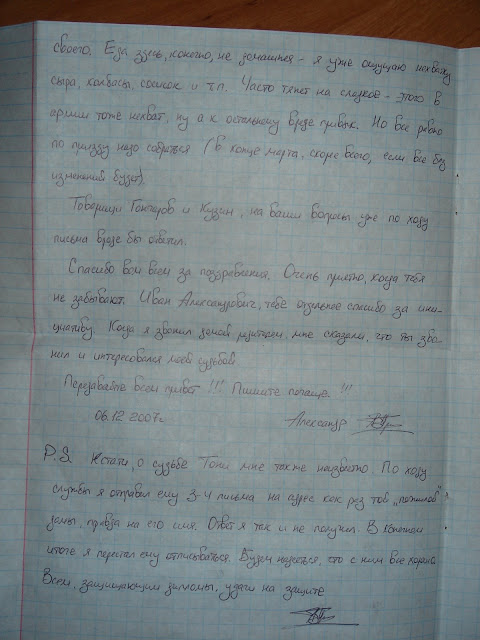 своего. Еда здесь, конечно, не домашняя - я уже ощущаю нехватку
сыра, колбасы, сосисок и т.п. Часто тянет на сладкое - этого в
армии тоже нехват, ну а к остальному вроде привык. Но все равно
по приезду надо собраться (в конце марта, скорее всего, если все без
изменений будет).
Товарищи Гончаров и Кузин, на ваши вопросы уже по ходу
письма вроде бы ответил.
Спасибо вам всем за поздравления. Очень приятно, когда тебя
не забывают. Иван Александрович, тебе отдельное спасибо за ини-
циативу. Когда я звонил домой родителям, мне сказали, что ты зво-
нил и интересовался моей судьбой
Передавайте всем привет !!! Пишите почаще. !!!
06.12 2007г. Александр
P.S. Кстати, о судьбе Тони мне также неизвестно. По ходу
службы я отправил ему 3-4 письма на адрес как раз той
замы, правда на его имя. Ответ я так и не получил. В конечном
итоге я перестал ему отписываться. Будем надеяться, что с ним все хорошо
Всем, защищающим дипломы, удачи на защите